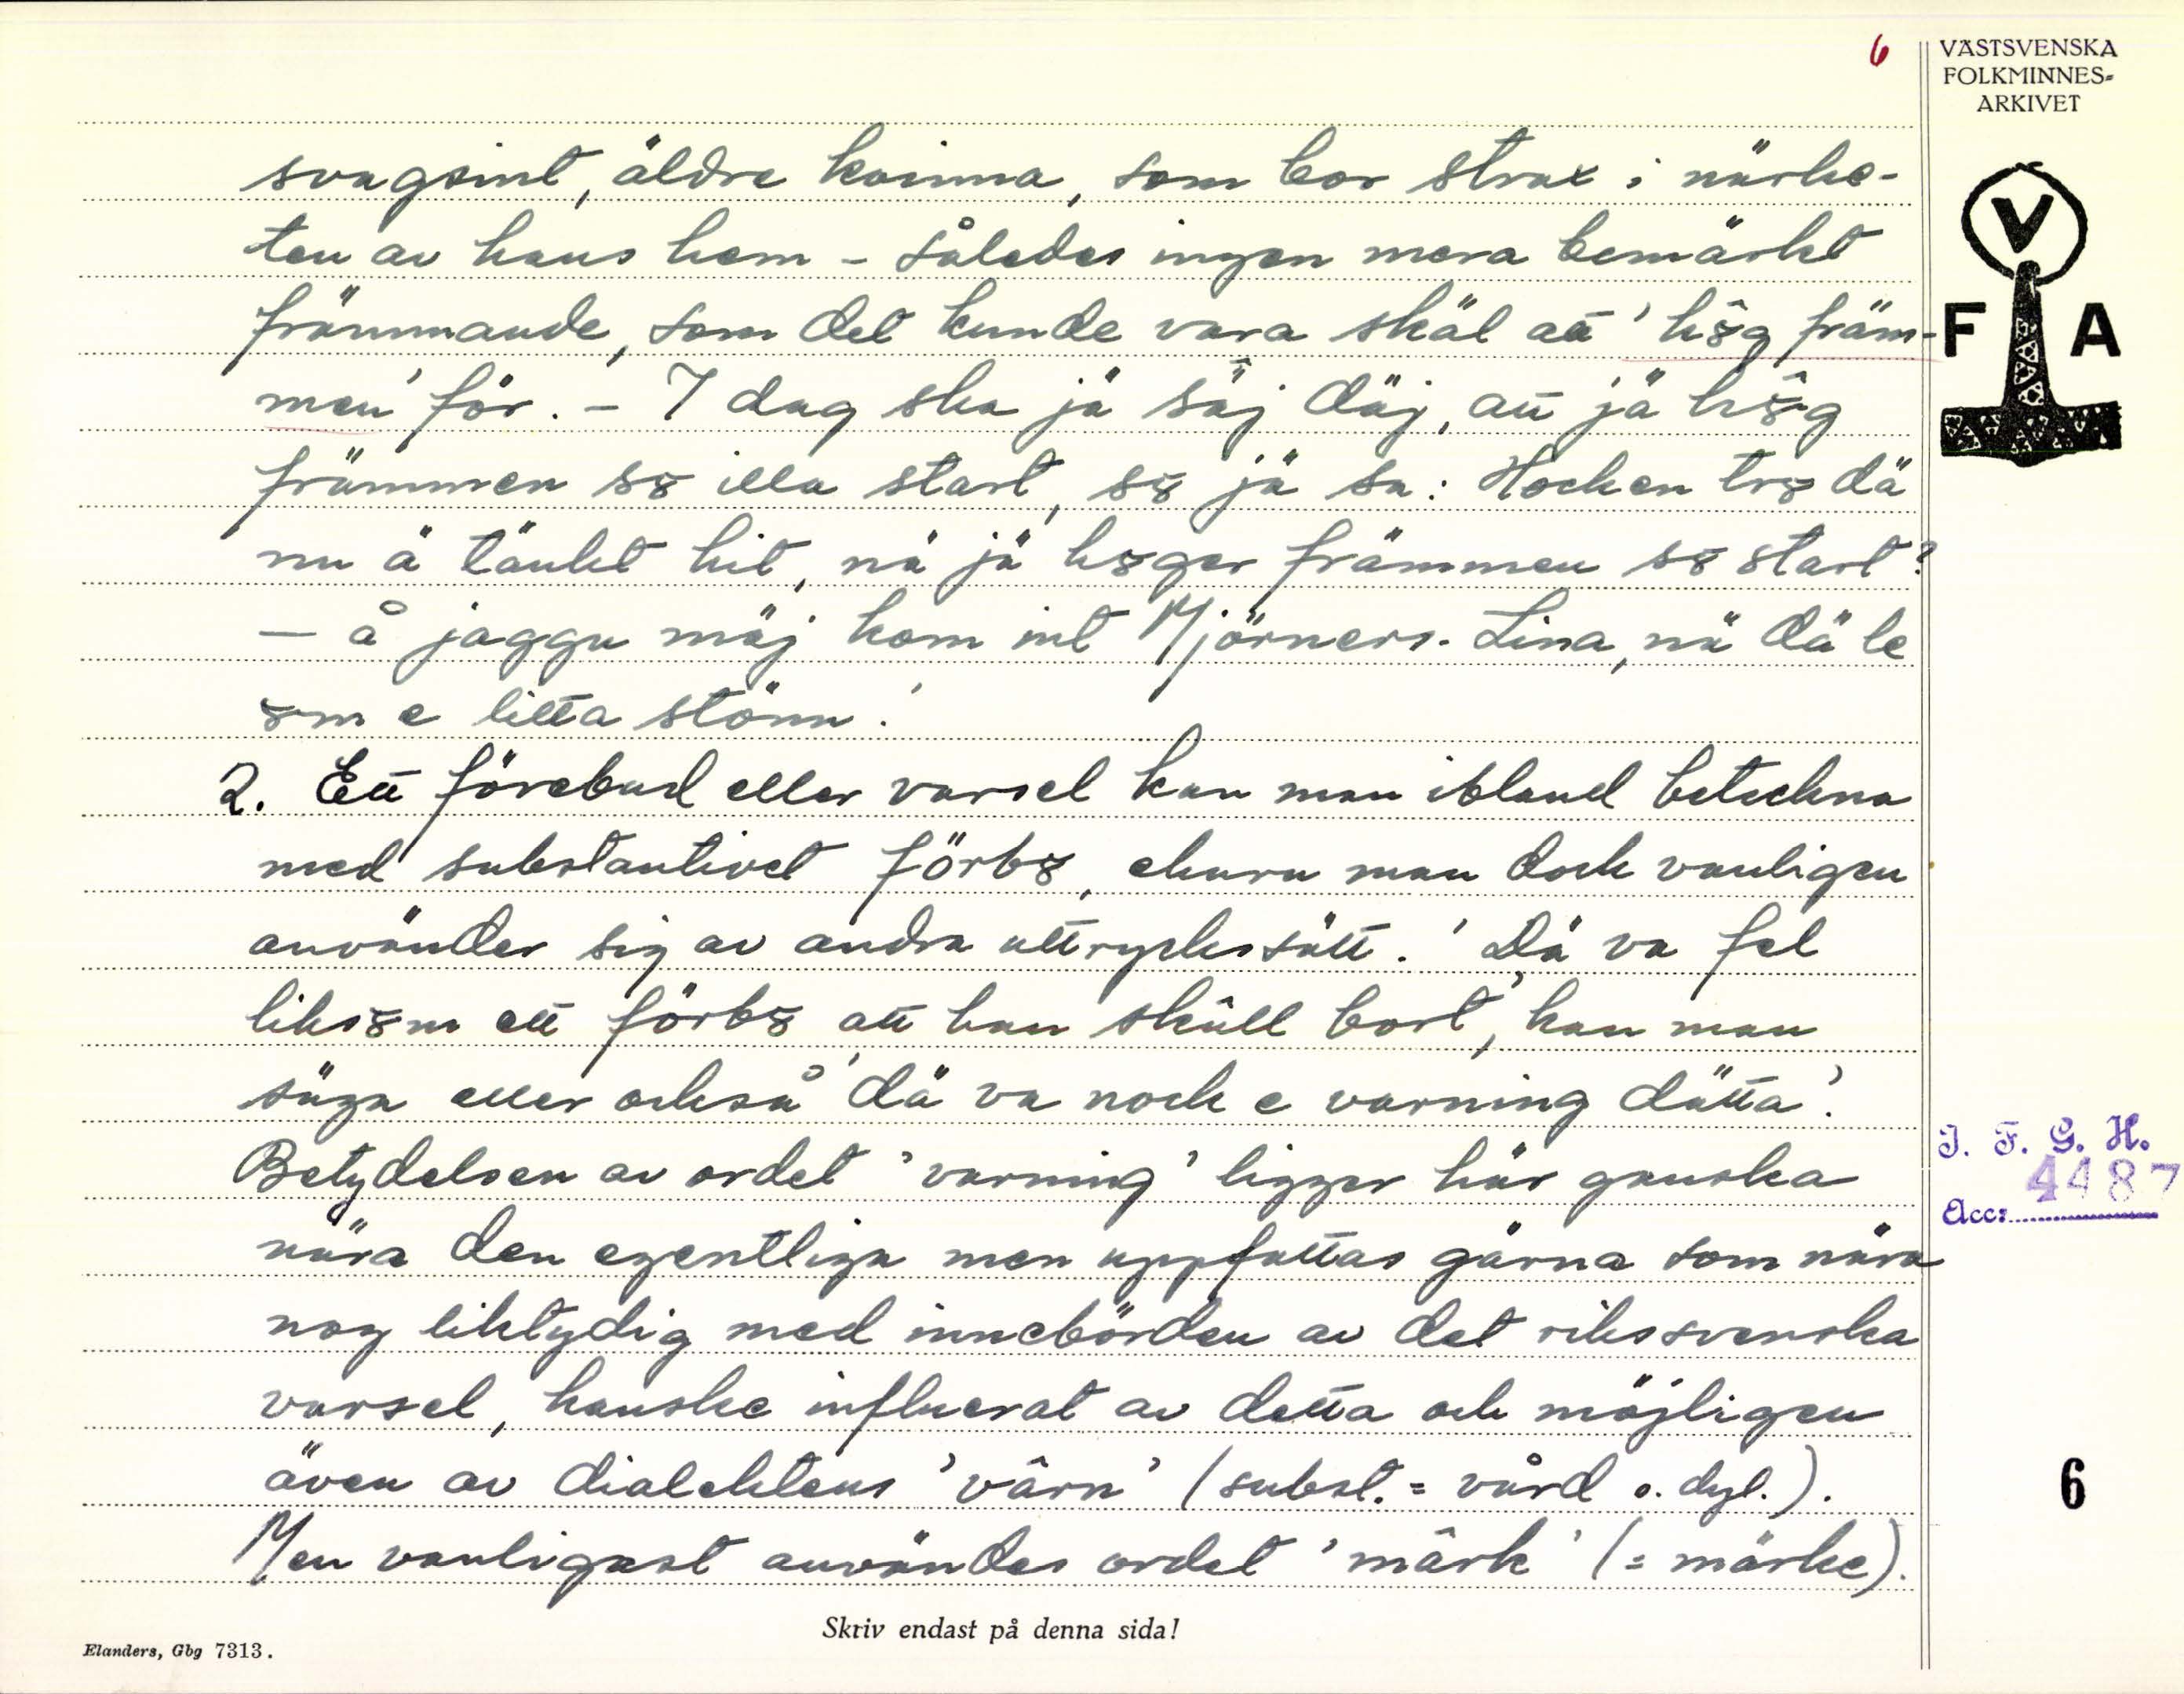 6
VÄSTSVENSKA
FOLKMINNES-
ARKIVET
V
F A
svagsint, äldre kvinna, som bor strax i närhe-
ten av hans hem - således ingen mera bemärkt
främmande, som det kunde vara skäl att 'hȣ̂g främ-
men' för. - 'I dag ska jä säj däj, att jä hȣ̂g
främmen sȣ illa start, sȣ jä sa: Hocken trȣ dä
nu ä tänkt hit, nä jä hȣger främmen sȣ start?
- å jaggu mäj kom int Mjörners-Lina, nä dä le
ȣm e litta stönn!'
2. Ett förebud eller varsel kan man ibland beteckna
med substantivet förbȣ, ehuru man dock vanligen
använder sig av andra uttryckssätt. 'Dä va fel
liksȣm ett förbȣ att han skûll bort', kan man
säga eller också 'dä va nock e varning dätta'.
Betydelsen av ordet 'varning' ligger här ganska
nära den egentliga men uppfattas gärna som nära
nog liktydig med innebörden av det rikssvenska
varsel, kanske influerat av detta och möjligen
även av dialektens 'vârn' (subst. = vård o. dyl.).
Men vanligast användes ordet 'mârk' (= märke).
I. F. G. H.
4487
Acc:
6
Skriv endast på denna sida!
Elanders, Gbg 7313.